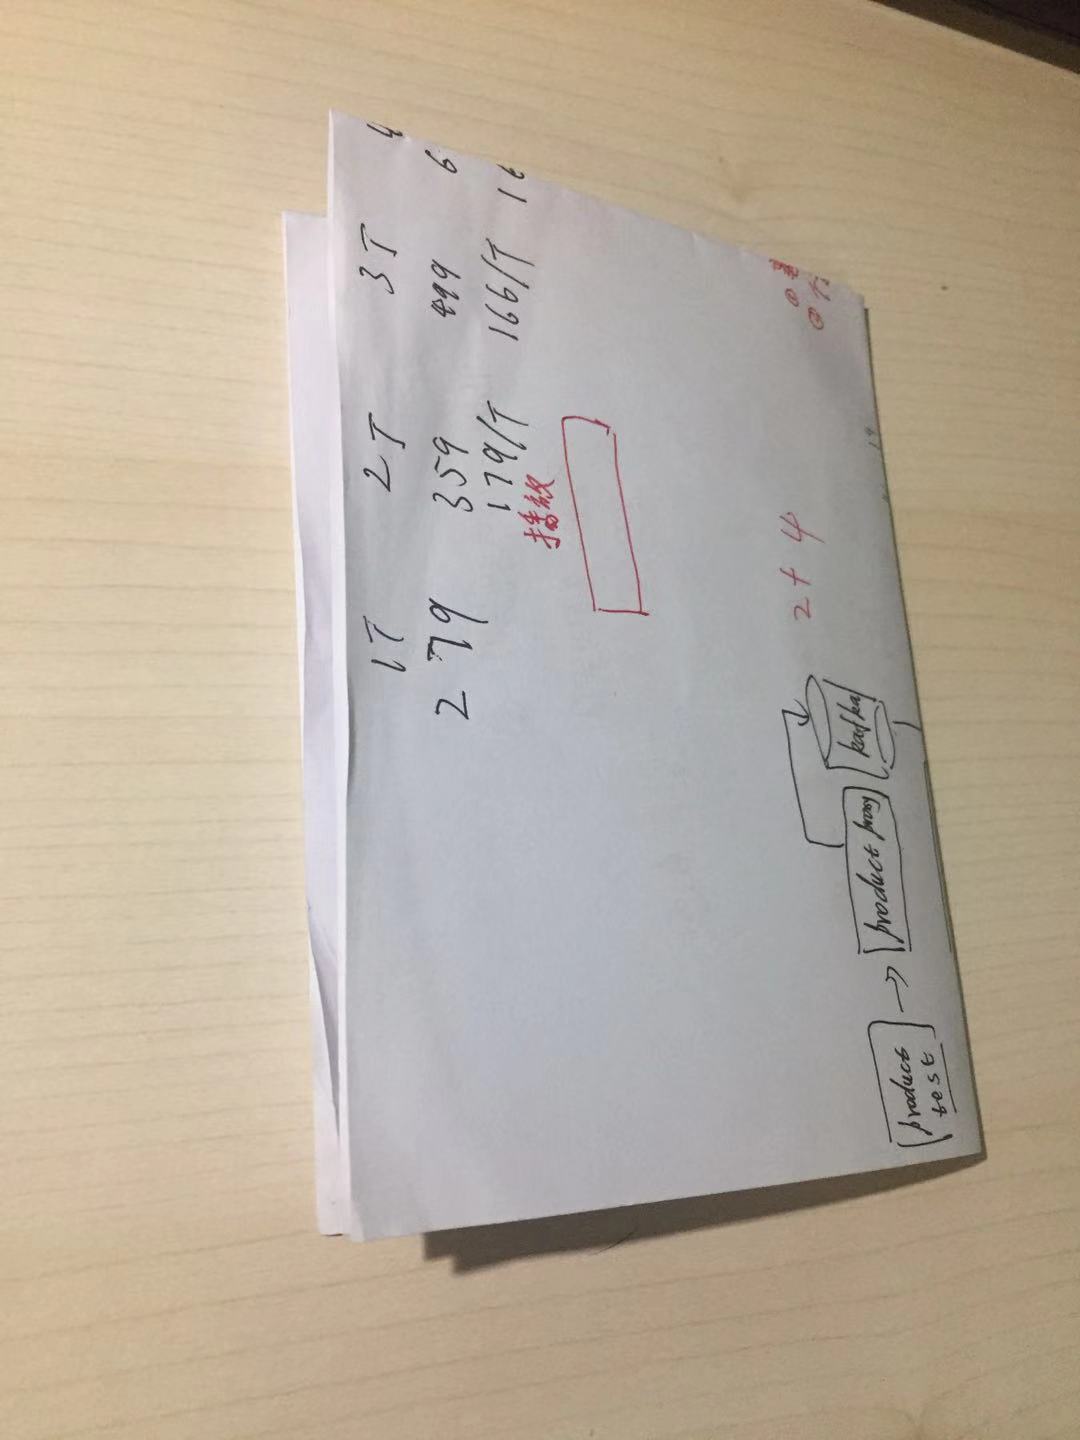 1T 2T 3T
279 359 499 6
179/T 166/T 1
播放
2+4
①
②
product test → product proxy kafka